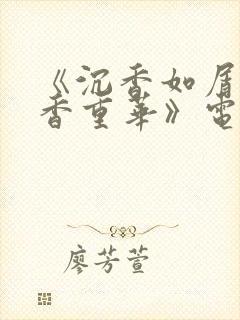 《沉香如屑
香重華》電
廖芳萱